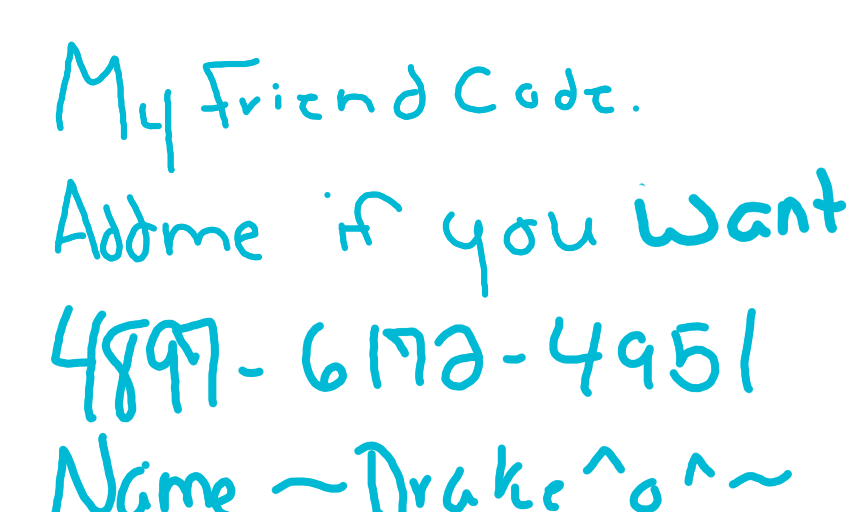 My Friend Code.
Add me if you want
4897-6172-4951
Name ~Drake^o^~